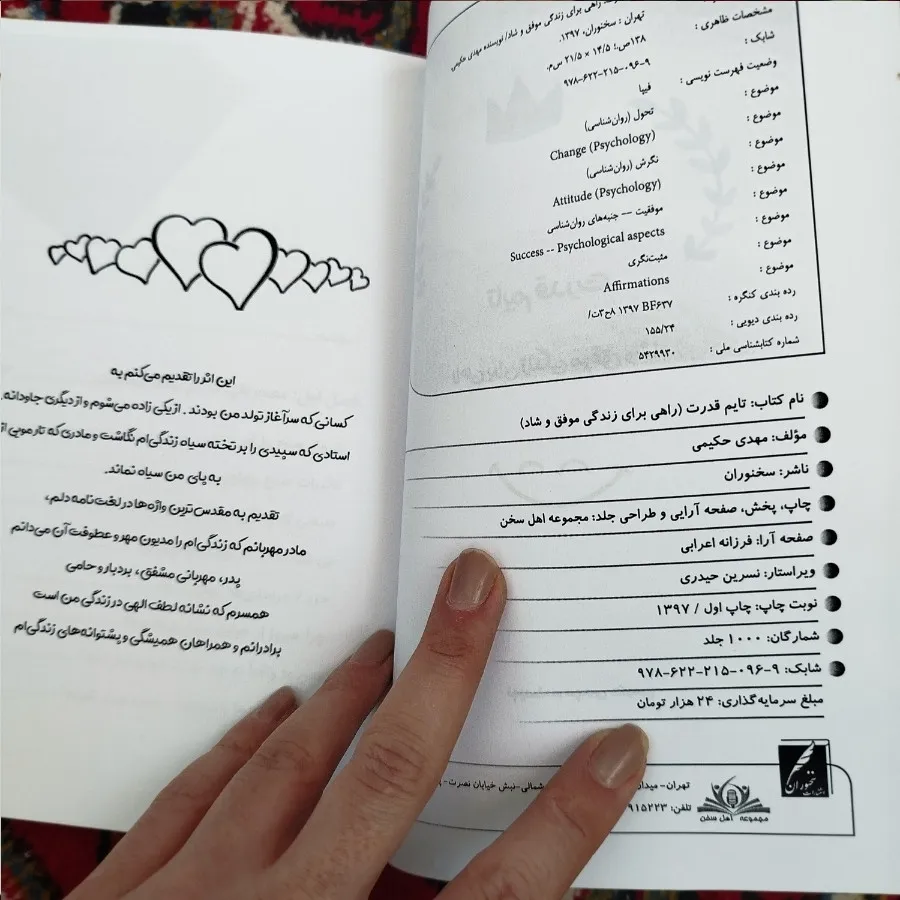 راهی برای زندگی موفق و شاد/ نویسنده مهدی حکیمی.
تهران : سخنوران، ۱۳۹۷.
مشخصات ظاهری :
۱۳۸ص.؛ ۱۴/۵ × ۲۱/۵ س‌م.
شابک :
۹۷۸-۶۲۲-۲۱۵-۰۹۶-۹
وضعیت فهرست نویسی :
فیپا
موضوع :
تحول (روان‌شناسی)
موضوع :
Change (Psychology)
موضوع :
نگرش (روان‌شناسی)
موضوع :
Attitude (Psychology)
موضوع :
موفقیت -- جنبه‌های روان‌شناسی
موضوع :
Success -- Psychological aspects
موضوع :
مثبت‌نگری
موضوع :
Affirmations
رده بندی کنگره :
BF۶۳۷ ۱۳۹۷ ۸ح۳ت/
رده بندی دیویی :
۱۵۵/۲۴
شماره کتابشناسی ملی :
۵۴۲۹۹۳۰
نام کتاب: تایم قدرت (راهی برای زندگی موفق و شاد)
مؤلف: مهدی حکیمی
ناشر: سخنوران
چاپ، پخش، صفحه آرایی و طراحی جلد: مجموعه اهل سخن
صفحه آرا: فرزانه اعرابی
ویراستار: نسرین حیدری
نوبت چاپ: چاپ اول / ۱۳۹۷
شمارگان: ۱۰۰۰ جلد
شابک: ۹-۰۹۶-۲۱۵-۶۲۲-۹۷۸
مبلغ سرمایه‌گذاری: ۲۴ هزار تومان
تهران- میدان
شمالی-نبش خیابان نصرت-
تلفن:
۹۱۵۲۲۳
مجموعه اهل سخن
انتشارات سخنوران
این اثر را تقدیم می‌کنم به
کسانی که سرآغاز تولد من بودند . از یکی زاده می‌شوم و از دیگری جاودانه.
استادی که سپیدی را بر تخته سیاه زندگی‌ام نگاشت و مادری که تار مویی از
به پای من سیاه نماند.
تقدیم به مقدس‌ترین واژه‌ها در لغت‌نامه دلم،
مادر مهربانم که زندگی‌ام را مدیون مهر و عطوفت آن می‌دانم
پدر، مهربانی مشفق، بردبار و حامی
همسرم که نشانه لطف الهی در زندگی من است
برادرانم و همراهان همیشگی و پشتوانه‌های زندگی‌ام